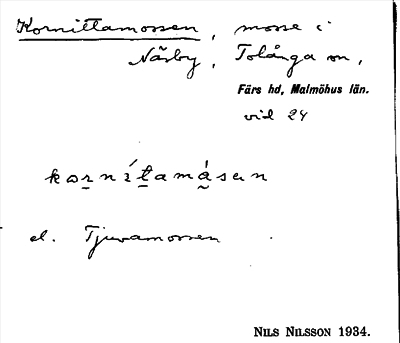 Kornittamossen, mosse i
Näsby, Tolånga sn,
Färs hd, Malmöhus län.
vid 24
el. Tjuvamossen
NILS NILSSON 1934.